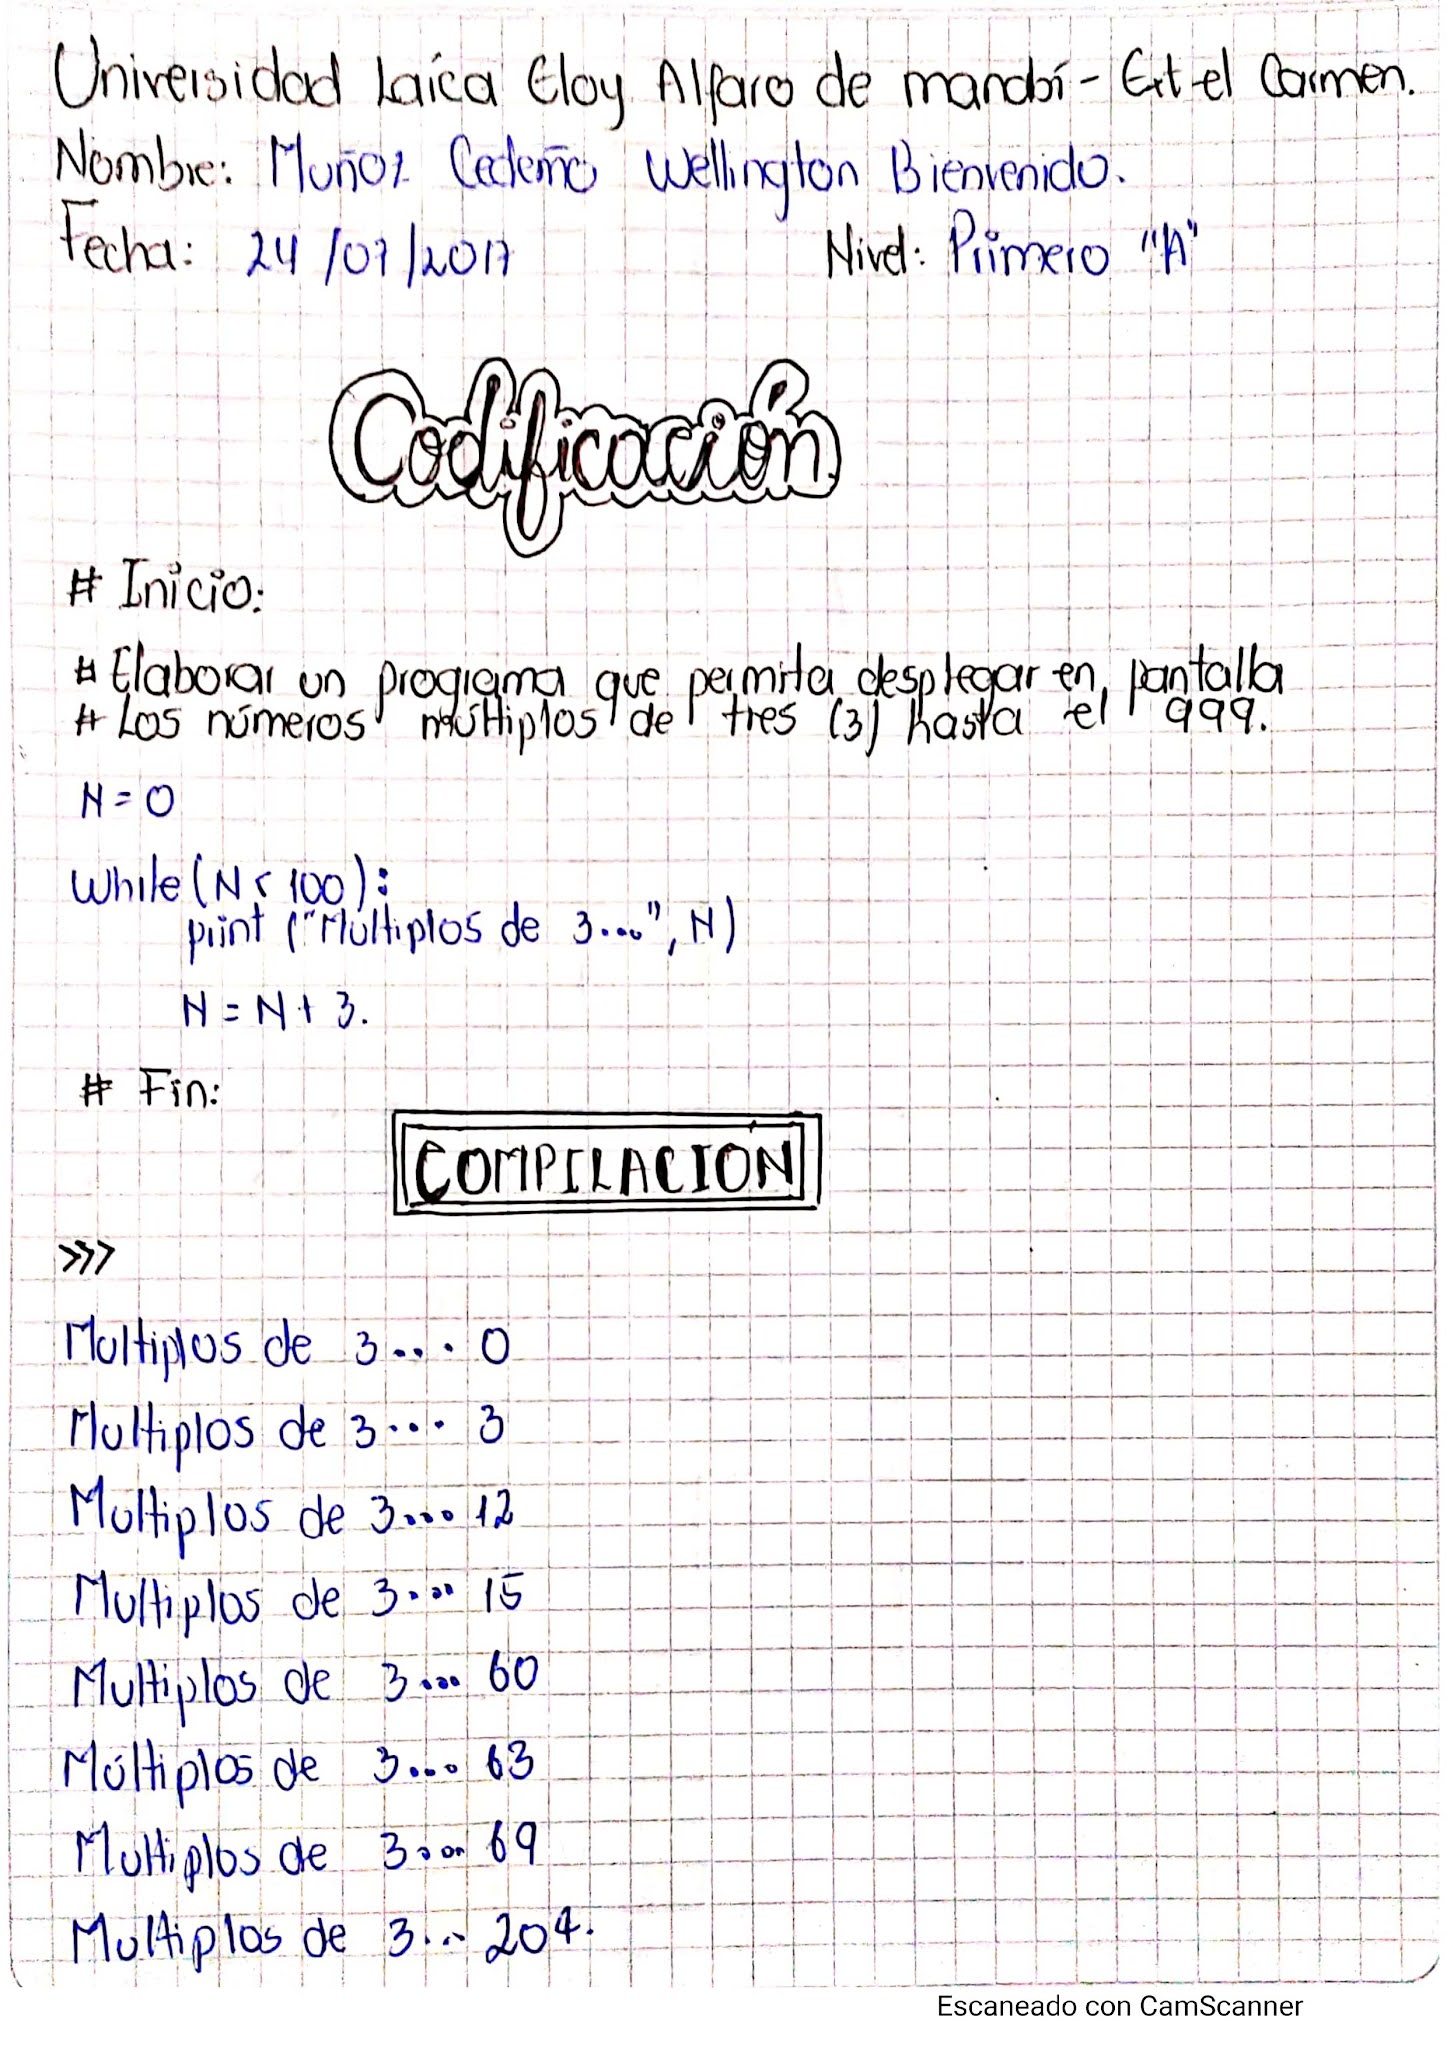 Universidad Laíca Eloy Alfaro de manabí - Ext el Carmen.
Nombre: Muñoz Cedeño Wellington Bienvenido.
Fecha: 24/07/2017 Nivel: Primero "A"
Codificación
# Inicio:
# Elaborar un programa que permita desplegar en pantalla
# Los números múltiplos de tres (3) hasta el 999.
N = 0
While (N < 100):
print ("Multiplos de 3...", N)
N = N + 3.
# Fin:
COMPILACIÓN
>>>
Multiplos de 3... 0
Multiplos de 3... 3
Multiplos de 3... 12
Multiplos de 3... 15
Multiplos de 3... 60
Múltiplos de 3... 63
Multiplos de 3... 69
Multiplos de 3... 204.
Escaneado con CamScanner